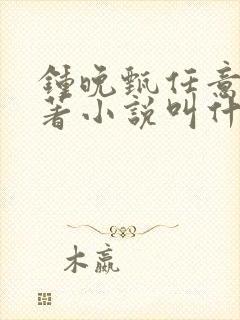 鍾晚甄任意
著小說叫什
木嬴